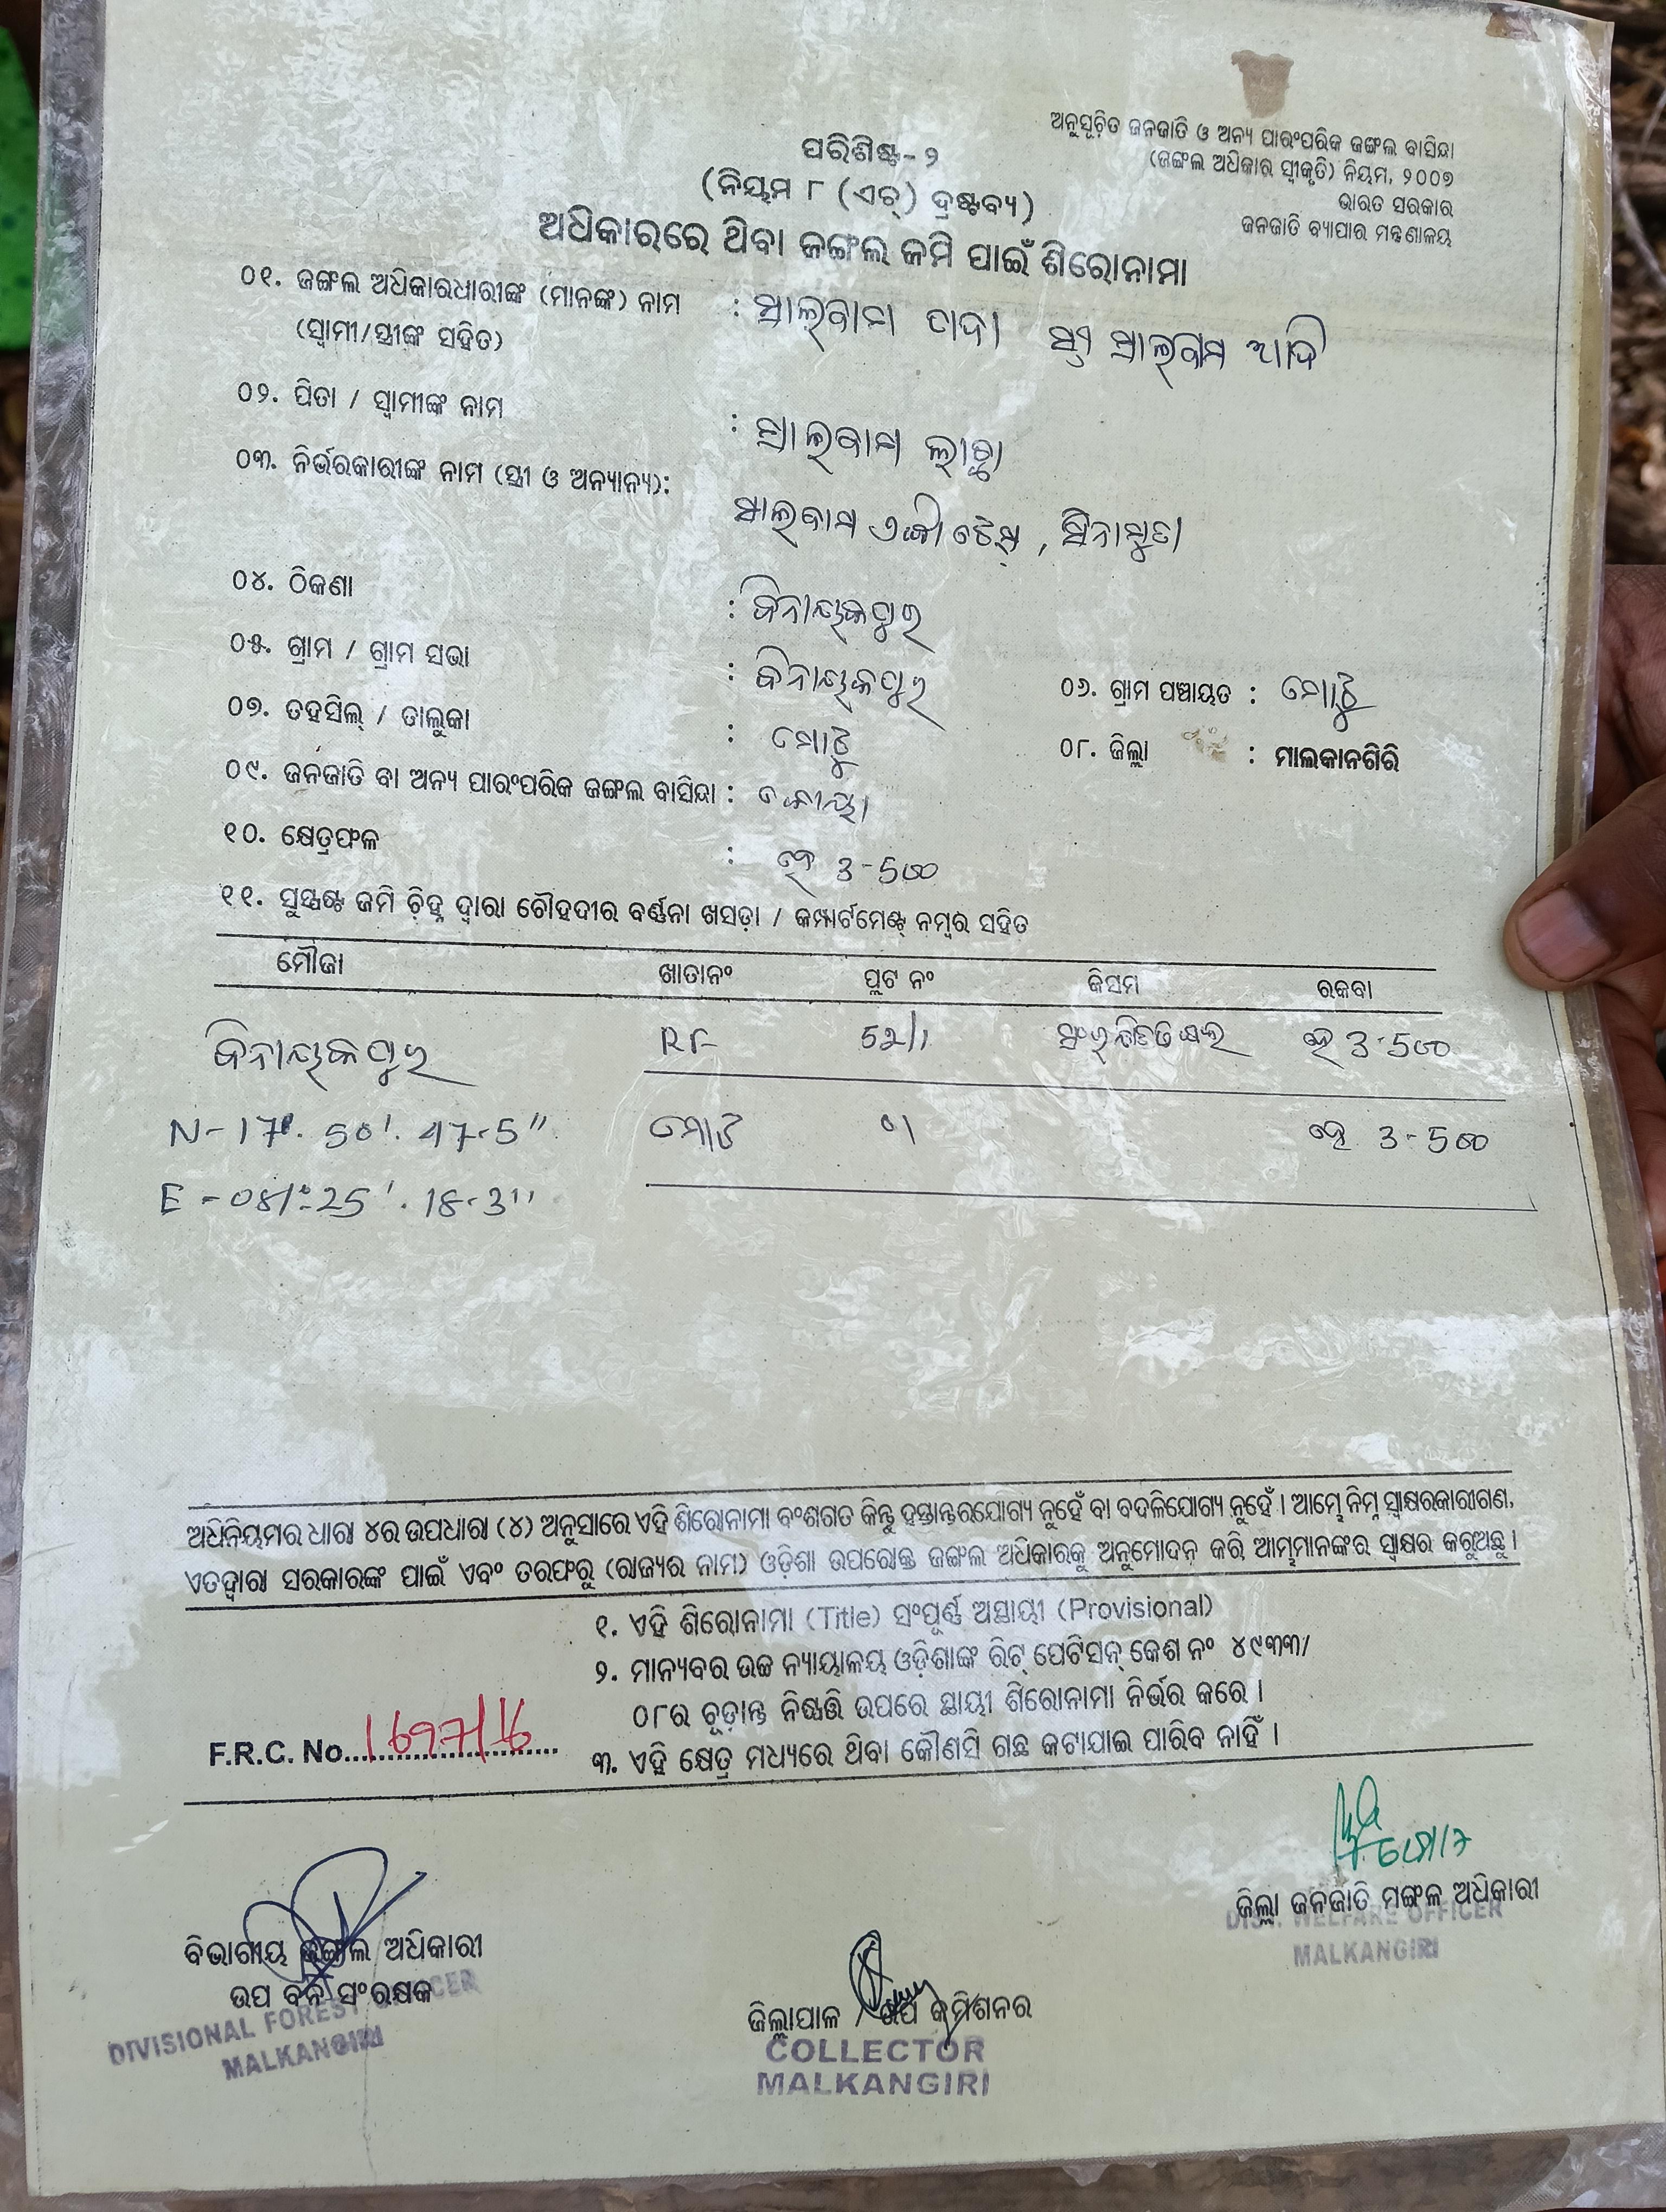 ଅନୁସୂଚିତ ଜନଜାତି ଓ ଅନ୍ୟ ପାରଂପରିକ ଜଙ୍ଗଲ ବାସିନ୍ଦା
(ଜଙ୍ଗଲ ଅଧିକାର ସ୍ୱୀକୃତି) ନିୟମ, ୨୦୦୭
ଭାରତ ସରକାର
ଜନଜାତି ବ୍ୟାପାର ମନ୍ତ୍ରଣାଳୟ
ପରିଶିଷ୍ଟ-୨
(ନିୟମ ୮ (ଏଚ୍) ଦ୍ରଷ୍ଟବ୍ୟ)
ଅଧିକାରରେ ଥିବା ଜଙ୍ଗଲ ଜମି ପାଇଁ ଶିରୋନାମା
୦୧. ଜଙ୍ଗଲ ଅଧିକାରଧାରୀଙ୍କ (ମାନଙ୍କ) ନାମ :
(ସ୍ୱାମୀ/ସ୍ତ୍ରୀଙ୍କ ସହିତ)
୦୨. ପିତା / ସ୍ୱାମୀଙ୍କ ନାମ :
୦୩. ନିର୍ଭରକାରୀଙ୍କ ନାମ (ସ୍ତ୍ରୀ ଓ ଅନ୍ୟାନ୍ୟ):
୦୪. ଠିକଣା : ବିନାୟକପୁର
୦୫. ଗ୍ରାମ / ଗ୍ରାମ ସଭା : ବିନାୟକପୁର ୦୬. ଗ୍ରାମ ପଞ୍ଚାୟତ : ମୋଟୁ
୦୭. ତହସିଲ୍ / ତାଲୁକା : ମୋଟୁ ୦୮. ଜିଲ୍ଲା : ମାଲକାନଗିରି
୦୯. ଜନଜାତି ବା ଅନ୍ୟ ପାରଂପରିକ ଜଙ୍ଗଲ ବାସିନ୍ଦା : କୋୟା
୧୦. କ୍ଷେତ୍ରଫଳ : ହେ 3-500
୧୧. ସୁସ୍ପଷ୍ଟ ଜମି ଚିହ୍ନ ଦ୍ୱାରା ଚୌହଦୀର ବର୍ଣ୍ଣନା ଖସଡ଼ା / କମ୍ପାର୍ଟମେଣ୍ଟ୍ ନମ୍ବର ସହିତ
ମୌଜା ଖାତାନଂ ପ୍ଲଟ ନଂ କିସମ ରକବା
ବିନାୟକପୁର RF 52/1 ହେ 3-500
N-17°. 50'. 47.5" ମୋଟ ୦୧ ହେ 3-500
E-081°-25'. 18.3"
ଅଧିନିୟମର ଧାରା ୪ର ଉପଧାରା (୪) ଅନୁସାରେ ଏହି ଶିରୋନାମା ବଂଶଗତ କିନ୍ତୁ ହସ୍ତାନ୍ତରଯୋଗ୍ୟ ନୁହେଁ ବା ବଦଳିଯୋଗ୍ୟ ନୁହେଁ । ଆମ୍ଭେ ନିମ୍ନ ସ୍ୱାକ୍ଷରକାରୀଗଣ,
ଏତଦ୍ୱାରା ସରକାରଙ୍କ ପାଇଁ ଏବଂ ତରଫରୁ (ରାଜ୍ୟର ନାମ) ଓଡ଼ିଶା ଉପରୋକ୍ତ ଜଙ୍ଗଲ ଅଧିକାରକୁ ଅନୁମୋଦନ କରି ଆମ୍ଭମାନଙ୍କର ସ୍ୱାକ୍ଷର କରୁଅଛୁ ।
୧. ଏହି ଶିରୋନାମା (Title) ସଂପୂର୍ଣ୍ଣ ଅସ୍ଥାୟୀ (Provisional)
୨. ମାନ୍ୟବର ଉଚ୍ଚ ନ୍ୟାୟାଳୟ ଓଡ଼ିଶାଙ୍କ ରିଟ୍ ପେଟିସନ୍ କେଶ ନଂ ୪୯୩୩/
୦୮ର ଚୂଡ଼ାନ୍ତ ନିଷ୍ପତ୍ତି ଉପରେ ସ୍ଥାୟୀ ଶିରୋନାମା ନିର୍ଭର କରେ ।
୩. ଏହି କ୍ଷେତ୍ର ମଧ୍ୟରେ ଥିବା କୌଣସି ଗଛ କଟାଯାଇ ପାରିବ ନାହିଁ ।
F.R.C. No.
ଜିଲ୍ଲା ଜନଜାତି ମଙ୍ଗଳ ଅଧିକାରୀ
DIST. WELFARE OFFICER
MALKANGIRI
ବିଭାଗୀୟ ଜଙ୍ଗଲ ଅଧିକାରୀ
ଉପ ବନ ସଂରକ୍ଷକ
DIVISIONAL FOREST OFFICER
MALKANGIRI
ଜିଲ୍ଲାପାଳ / ଉପ କମିଶନର
COLLECTOR
MALKANGIRI